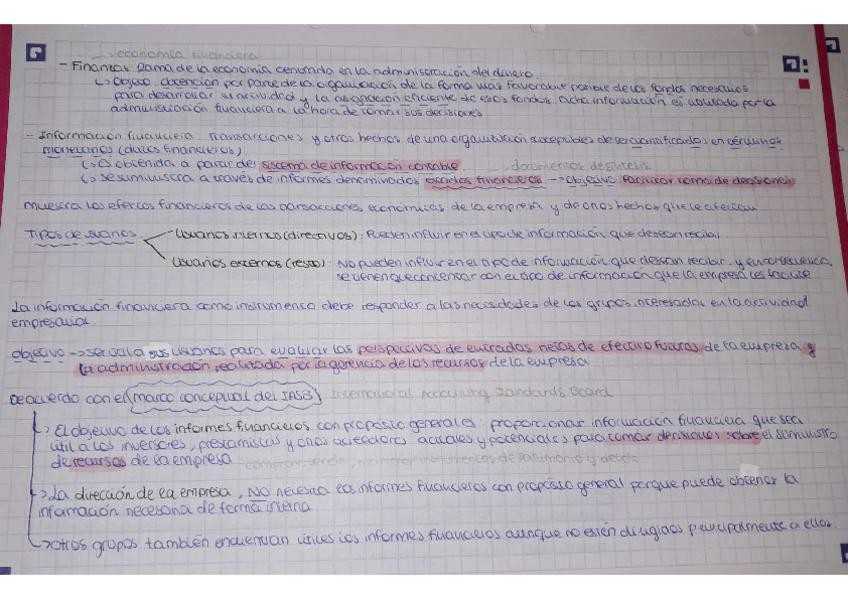 economía financiera
- Finanzas: Rama de la economía centrada en la administración del dinero.
↳ Objeto: obtención por parte de la organización de la forma más favorable posible de los fondos necesarios
para desarrollar su actividad y la asignación eficiente de esos fondos. Dicha información es utilizada por la
administración financiera a la hora de tomar sus decisiones
- Información financiera: Transacciones y otros hechos de una organización susceptibles de ser cuantificados en términos
monetarios (datos financieros)
↳ Es obtenida a partir del sistema de información contable documentos de síntesis
↳ se suministra a través de informes denominados estados financieros → objetivo facilitar toma de decisiones
muestra los efectos financieros de las transacciones económicas de la empresa y de otros hechos que le afectan
Tipos de usuarios
Usuarios internos (directivos): Pueden influir en el tipo de información que desean recibir
Usuarios externos (resto): No pueden influir en el tipo de información que desean recibir, y en consecuencia,
se tienen que contentar con el tipo de información que la empresa les facilite
La información financiera como instrumento debe responder a las necesidades de los grupos interesados en la actividad
empresarial.
objetivo → ser útil a sus usuarios para evaluar las perspectivas de entradas netas de efectivo futuras de la empresa y
la administración realizada por la gerencia de los recursos de la empresa
De acuerdo con el (marco conceptual del IASB) International Accounting Standards Board
↳ El objetivo de los informes financieros con propósito general es: proporcionar información financiera que sea
útil a los inversores, prestamistas y otros acreedores actuales y potenciales para tomar decisiones sobre el suministro
de recursos de la empresa comprar, vender, mantener instrumentos de patrimonio y deuda
↳ La dirección de la empresa, NO necesita los informes financieros con propósito general porque puede obtener la
información necesaria de forma interna
↳ otros grupos también encuentran útiles los informes financieros aunque no estén dirigidos principalmente a ellos.